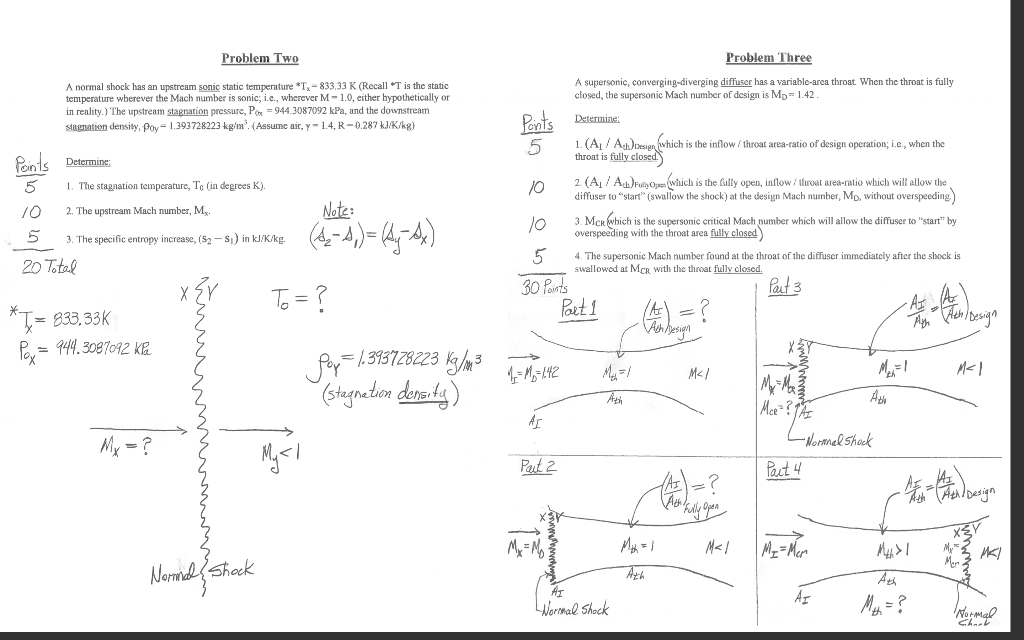 Problem Two
A normal shock has an upstream sonic static temperature *Tx = 833.33 K (Recall *T is the static
temperature wherever the Mach number is sonic; i.e., wherever M = 1.0, either hypothetically or
in reality.) The upstream stagnation pressure, P0x = 944.3087092 kPa, and the downstream
stagnation density, ρ0y = 1.393728223 kg/m³. (Assume air, γ = 1.4, R = 0.287 kJ/K/kg)
Points
Determine:
5
1. The stagnation temperature, T0 (in degrees K).
10
2. The upstream Mach number, Mx.
5
3. The specific entropy increase, (s2 – s1) in kJ/K/kg.
Note:
(s2-s1)=(sy-sx)
20 Total
X Y
To = ?
*Tx = 833.33K
Pox = 944.3087092 kPa
ρoy = 1.393728223 kg/m³
(stagnation density)
Mx = ?
My<1
Normal Shock
Problem Three
A supersonic, converging-diverging diffuser has a variable-area throat. When the throat is fully
closed, the supersonic Mach number of design is MD = 1.42 .
Points
Determine:
5
1. (AI / Ath)Design (which is the inflow / throat area-ratio of design operation; i.e., when the
throat is fully closed.)
10
2. (AI / Ath)FullyOpen (which is the fully open, inflow / throat area-ratio which will allow the
diffuser to "start" (swallow the shock) at the design Mach number, MD, without overspeeding.)
10
3. MCR (which is the supersonic critical Mach number which will allow the diffuser to "start" by
overspeeding with the throat area fully closed.)
5
4. The supersonic Mach number found at the throat of the diffuser immediately after the shock is
swallowed at MCR with the throat fully closed.
30 Points
Part 1
(AI/Ath)Design = ?
MI=MD=1.42
Mth=1
M<1
Ath
AI
Part 3
AI/Ath = (AI/Ath)Design
X Y
Mth=1
M<1
Mx=MCR
Mcr=?
AI
Ath
Normal Shock
Part 2
(AI/Ath)Fully Open = ?
X Y
Mx=MD
Mth=1
M<1
Ath
AI
Normal Shock
Part 4
AI/Ath = (AI/Ath)Design
X Y
MI=Mcr
Mth>1
Mx=
Mcr
M<1
Ath
AI
Mth=?
Normal
Shock